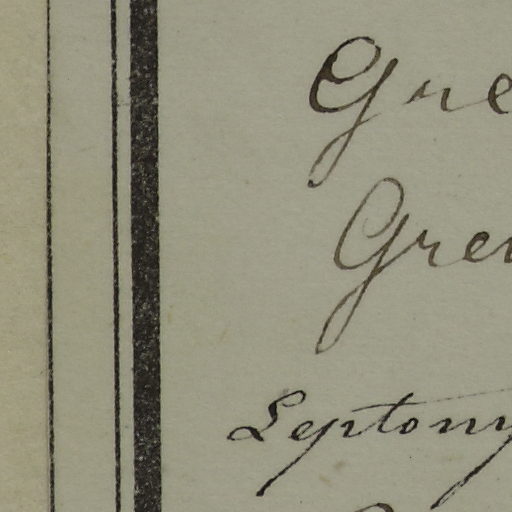 Gre
Gren
Leptony